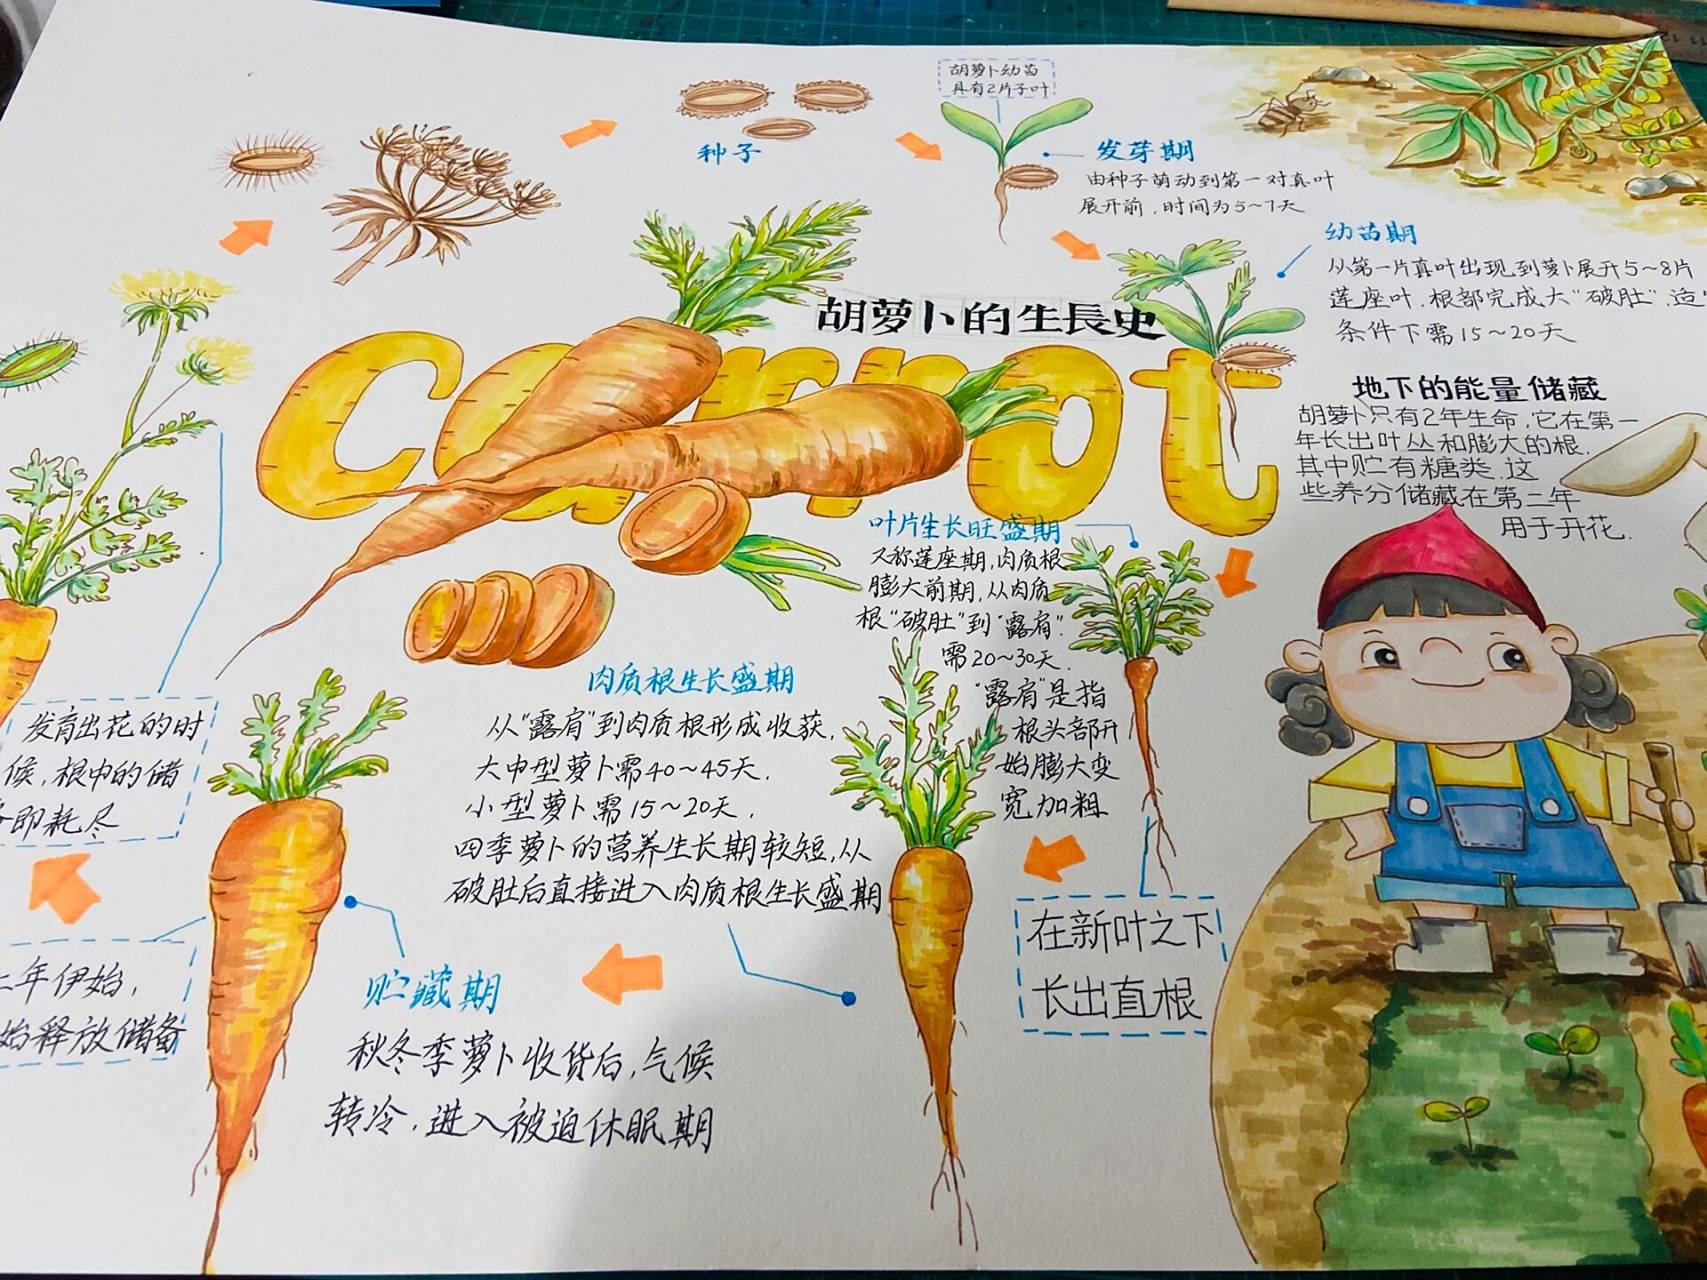 胡萝卜幼苗
具有2片子叶
种子
发芽期
由种子萌动到第一对真叶
展开前，时间为5~7天
幼苗期
从第一片真叶出现到萝卜展开5~8片
莲座叶，根部完成大"破肚"，适
条件下需15~20天
胡萝卜的生長史
carrot
地下的能量储藏
胡萝卜只有2年生命，它在第一
年长出叶丛和膨大的根，
其中贮有糖类，这
些养分储藏在第二年
用于开花．
叶片生长旺盛期
又称莲座期，肉质根
膨大前期，从肉质
根"破肚"到"露肩"．
需20~30天．
"露肩"是指
根头部开
始膨大变
宽加粗．
在新叶之下
长出直根
肉质根生长盛期
从"露肩"到肉质根形成收获，
大中型萝卜需40~45天．
小型萝卜需15~20天，
四季萝卜的营养生长期较短，从
破肚后直接进入肉质根生长盛期
贮藏期
秋冬季萝卜收货后，气候
转冷，进入被迫休眠期
二年伊始，
始释放储备
发育出花的时
候，根中的储
备即耗尽